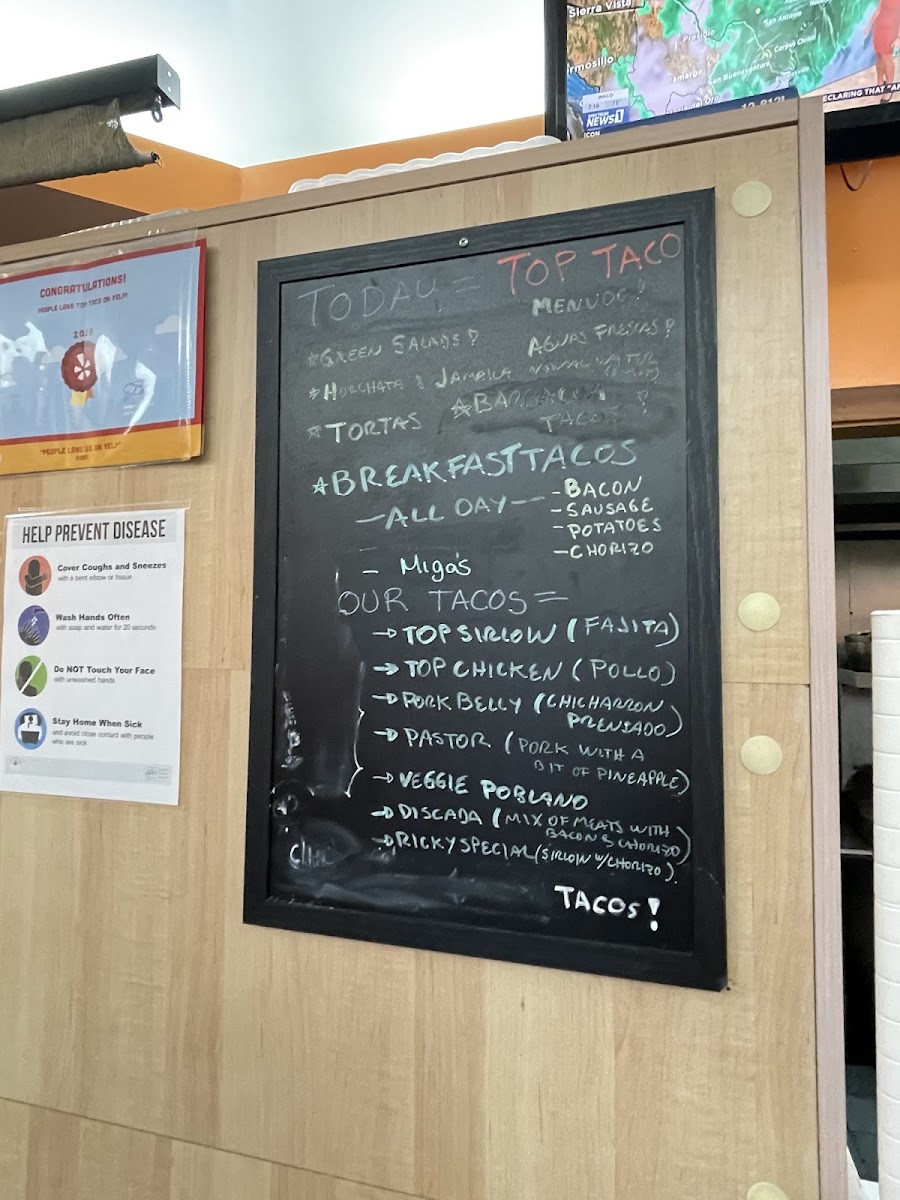 Sierra Vista
Presidio
San Antonio
Corpus Christi
Camargo
San Buenaventura
WACO
7:19
SPECTRUM
NEWS 1
DECLARING THAT
CONGRATULATIONS!
PEOPLE LOVE TOP TACO ON YELP!
2020
"PEOPLE LOVE US ON YELP"
HELP PREVENT DISEASE
Cover Coughs and Sneezes
with a bent elbow or tissue
Wash Hands Often
with soap and water for 20 seconds
Do NOT Touch Your Face
with unwashed hands
Stay Home When Sick
and avoid close contact with people
who are sick
TODAY = TOP TACO
MENUDO!
*GREEN SALADS!
AGUAS FRESCAS!
*HORCHATA & JAMAICA
*TORTAS
*BARBACOA
TACOS!
*BREAKFAST TACOS
- ALL DAY -
- BACON
- SAUSAGE
- POTATOES
- CHORIZO
- Migas
OUR TACOS =
→ TOP SIRLOIN (FAJITA)
→ TOP CHICKEN (POLLO)
→ PORK BELLY (CHICHARRON
PRENSADO)
→ PASTOR (PORK WITH A
BIT OF PINEAPPLE)
→ VEGGIE POBLANO
→ DISCADA (MIX OF MEATS WITH
BACON & CHORIZO)
→ RICKY SPECIAL (SIRLOIN W/CHORIZO).
TACOS!